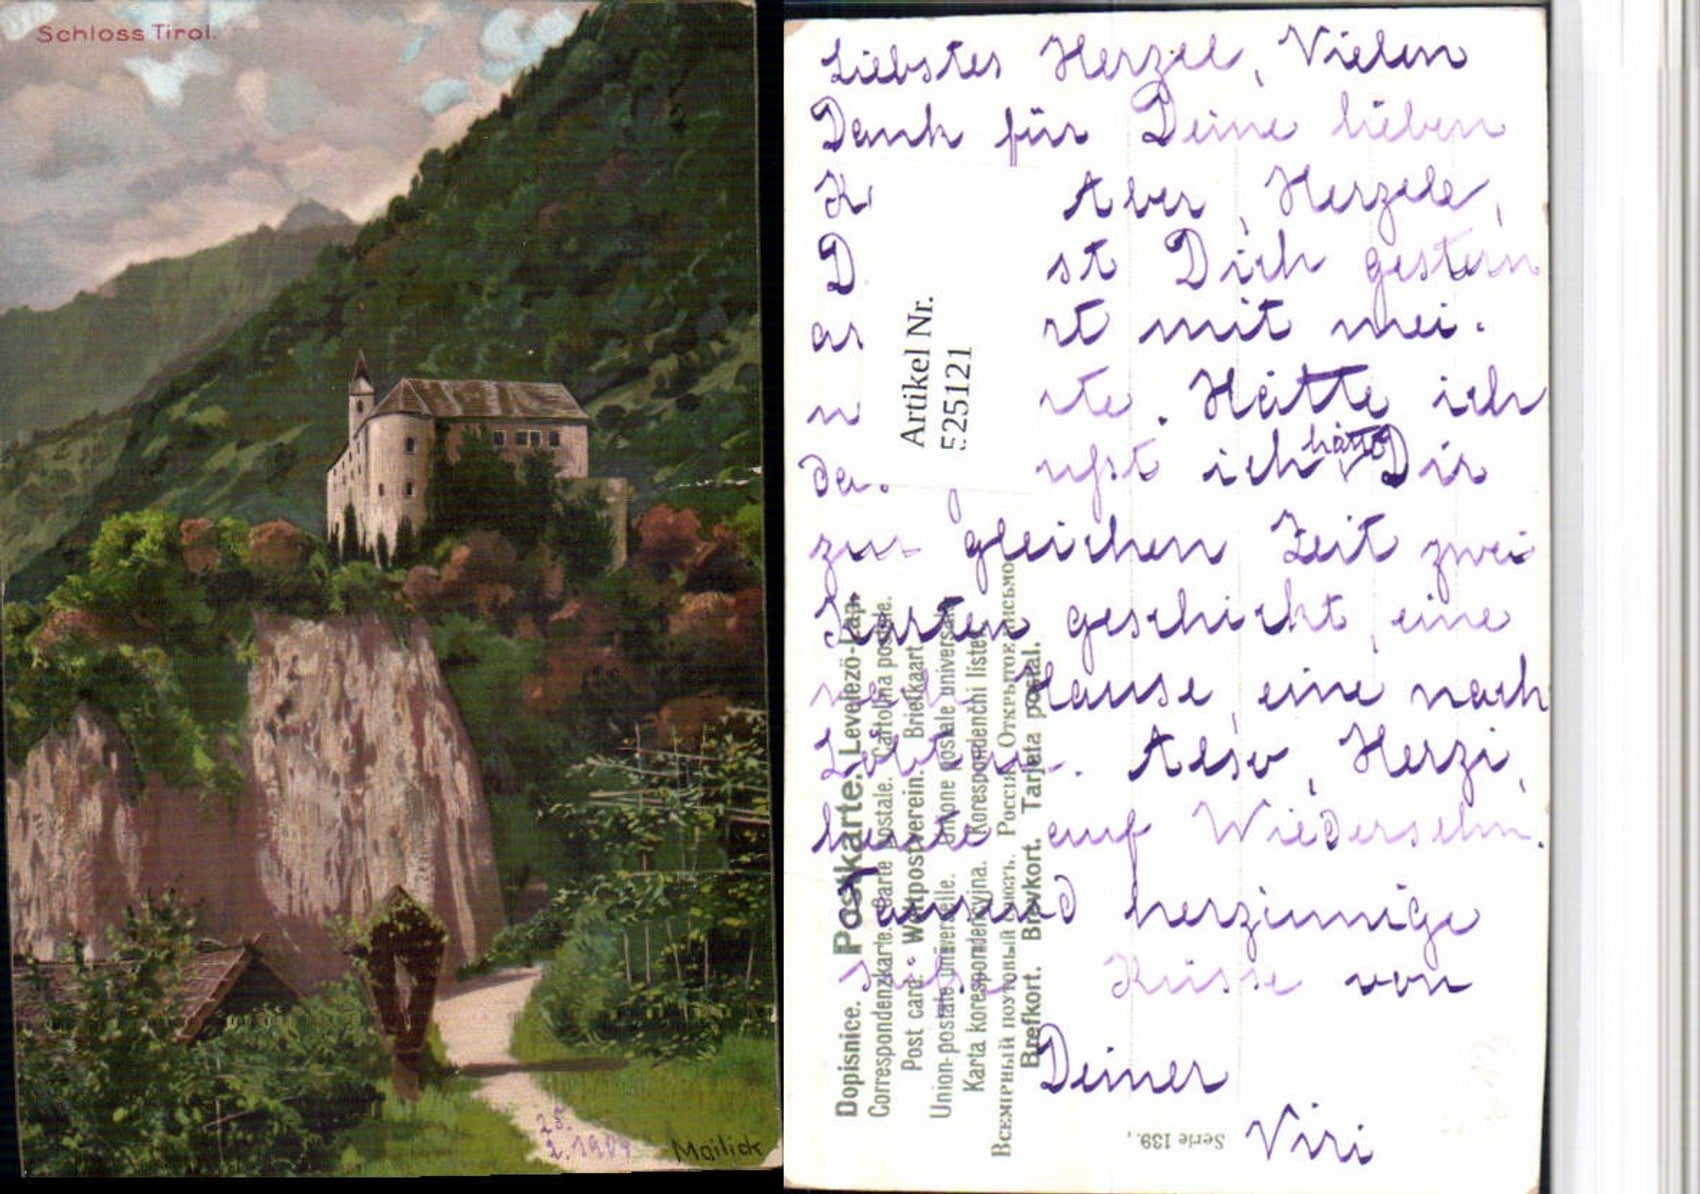 Schloss Tirol.
25.
Mailick
Liebstes Herzel, Vielen
Dank für Deine lieben
K Aber, Herzele,
D st Dich gestern
ar rt mit mei-
n rte. Hätte ich
das ußt ich hätte Dir
zur gleichen Zeit zwei
Karten geschickt, eine
nach Hause, eine nach
Also, Herzi,
heute auf Wiedersehn.
Tausend herzinnige
Küsse von
Deiner
Viri
Artikel Nr.
525121
Dopisnice. Postkarte. Levelező-Lap.
Correspondenzkarte. Carte postale. Cartolina postale.
Post card. Weltpostverein. Briefkaart.
Union postale universelle. Unione postale universale.
Karta korespondencyjna. Korespondenčni listek.
Всемірный почтовый союзъ. Россія. Открытое письмо.
Brefkort. Brevkort. Tarjeta postal.
Serie 139.